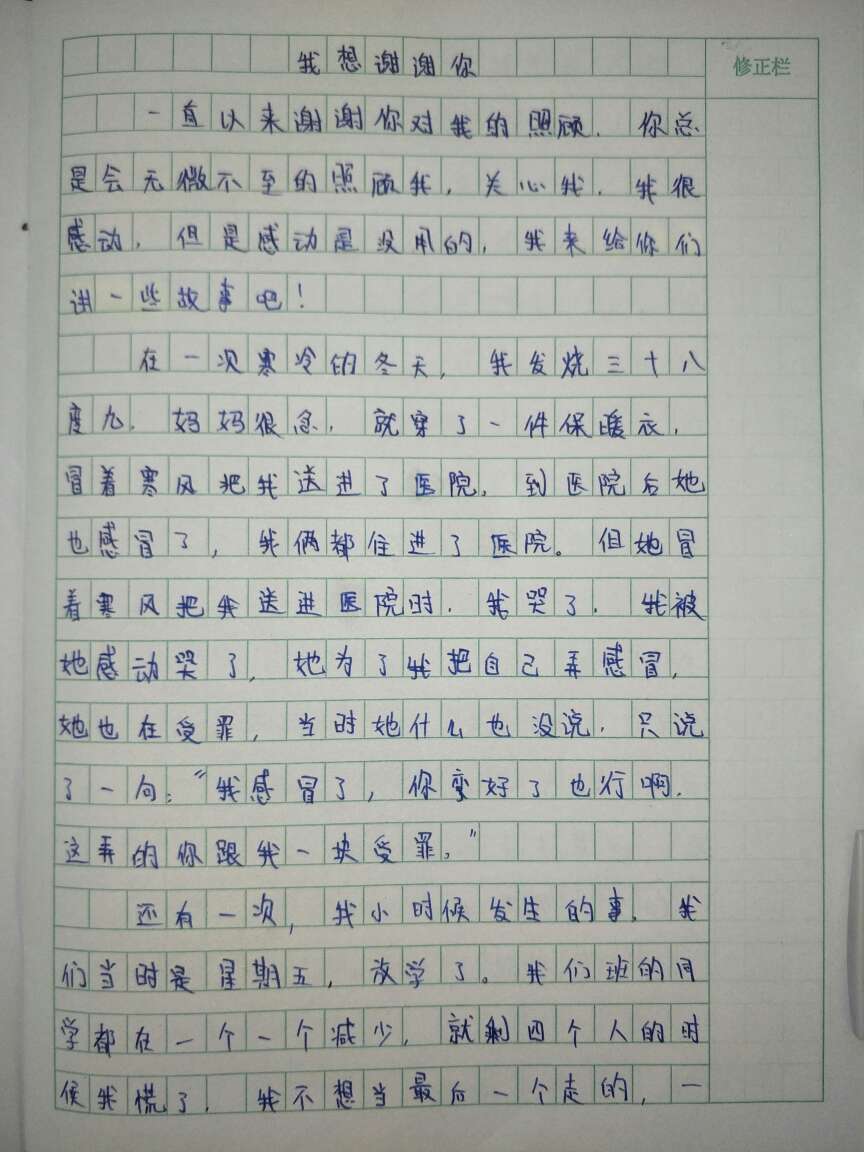 我想谢谢你
修正栏
一直以来谢谢你对我的照顾．你总
是会无微不至的照顾我，关心我．我很
感动．但是感动是没用的，我来给你们
讲一些故事吧！
在一次寒冷的冬天，我发烧三十八
度九．妈妈很急．就穿了一件保暖衣，
冒着寒风把我送进了医院．到医院后她
也感冒了，我俩都住进了医院。但她冒
着寒风把我送进医院时．我哭了．我被
她感动哭了，她为了我把自己弄感冒，
她也在受罪，当时她什么也没说．只说
了一句："我感冒了，你变好了也行啊．
这弄的你跟我一块受罪。"
还有一次，我小时候发生的事．我
们当时是星期五，放学了。我们班的同
学都在一个一个减少，就剩四个人的时
候我慌了．我不想当最后一个走的，一